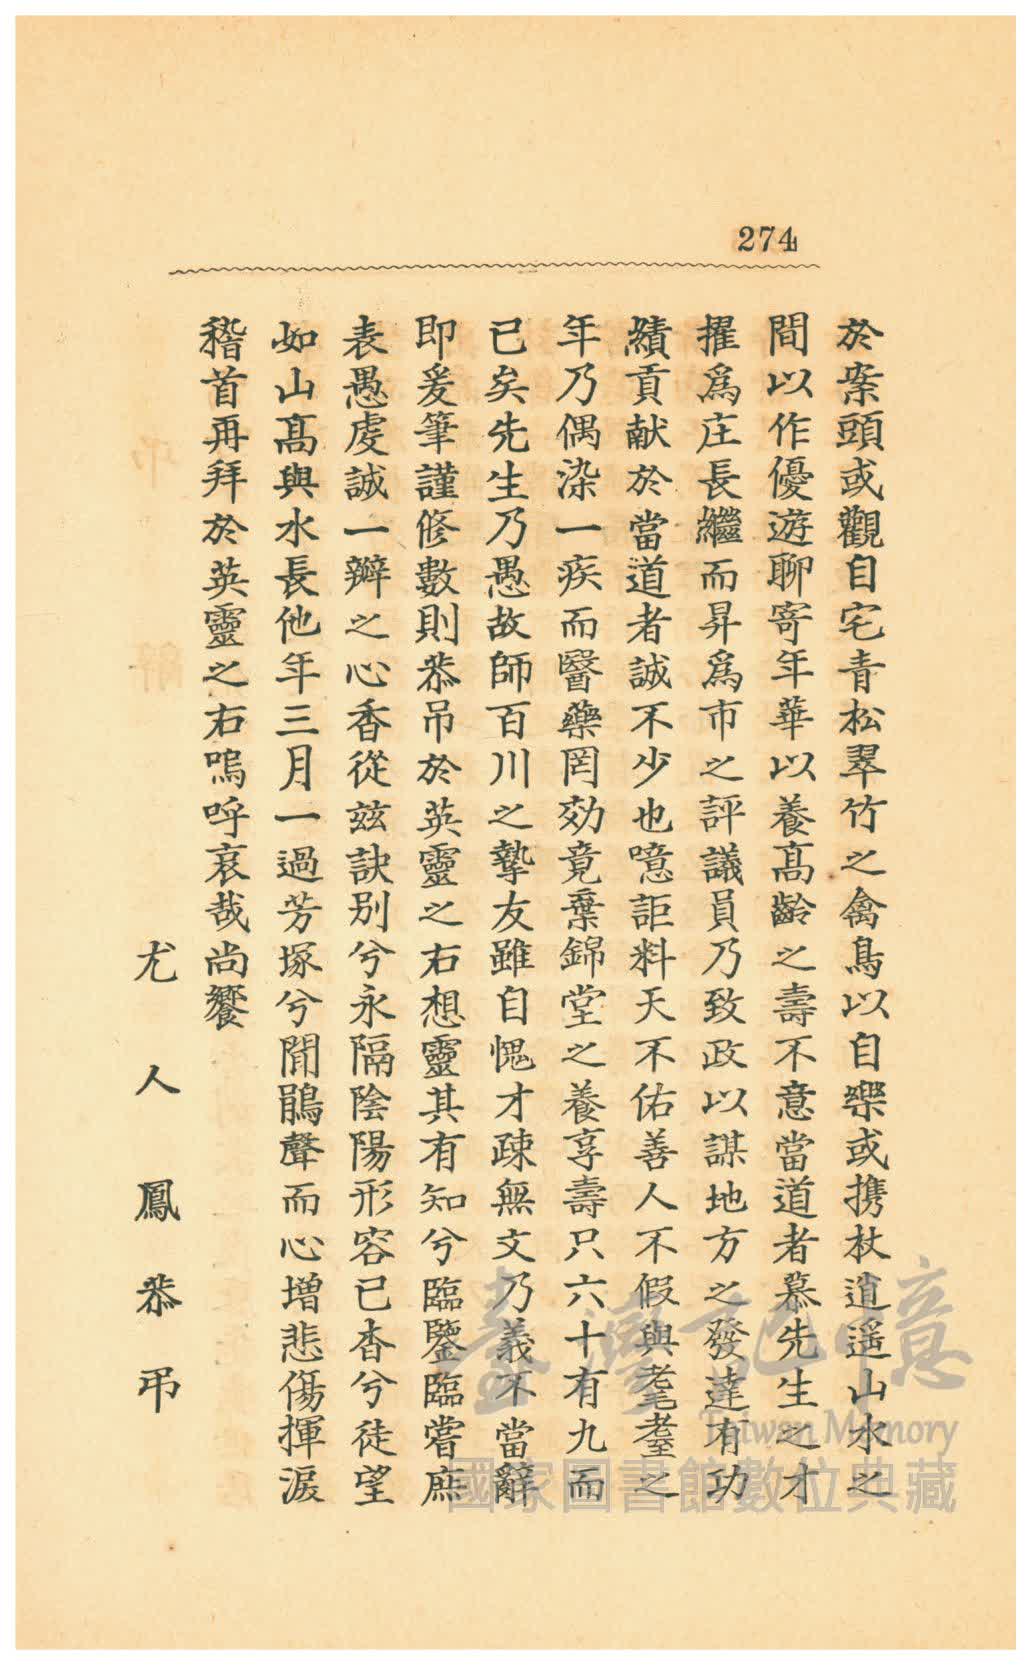 274
於案頭或觀自宅青松翠竹之禽鳥以自樂或携杖逍遥山水之
間以作優遊聊寄年華以養高齡之壽不意當道者慕先生之才
擢爲庄長繼而昇爲市之評議員乃致政以謀地方之發達有功
績貢献於當道者誠不少也噫詎料天不佑善人不假與耄耋之
年乃偶染一疾而醫藥罔効竟棄錦堂之養享壽只六十有九而
已矣先生乃愚故師百川之摯友雖自愧才疎無文乃義不當辭
即爰筆謹修數則恭吊於英靈之右想靈其有知兮臨鑒臨嘗庶
表愚虔誠一瓣之心香從茲訣别兮永隔陰陽形容已杳兮徒望
如山髙與水長他年三月一過芳塚兮聞鵑聲而心增悲傷揮淚
稽首再拜於英靈之右嗚呼哀哉尚饗
尤人鳳恭弔
臺灣記憶
Taiwan Memory
國家圖書館數位典藏